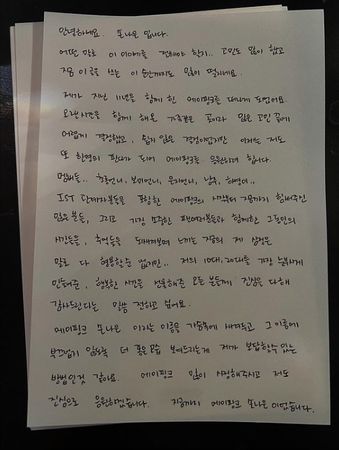 안녕하세요. 손나은 입니다.
어떤 말로 이 이야기를 전해야 할지.. 고민도 많이 했고
지금 이 글을 쓰는 이 순간까지도 많이 떨리네요.
제가 지난 11년을 함께 한 에이핑크를 떠나게 되었어요.
오랜시간을 함께 해온 가족같은 팀이라 많은 고민 끝에
어렵게 결정했고, 쉽지 않은 결정이었지만 이제는 저도
또 한명의 판다가 되어 에이핑크를 응원하려 합니다.
멤버들.. 초롱언니, 보미언니, 은지언니, 남주, 하영이..
IST 관계자분들을 포함한 에이핑크의 시작부터 지금까지 함께해주신
많은분들, 그리고 가장 소중한 판다여러분들과 함께한 그동안의
시간들을, 추억들을 되새겨보며 느끼는 지금의 제 심정은
말로 다 형용할 수 없지만.. 저의 10대, 20대를 가장 빛나게
만들어준, 행복한 시간을 선물해준 모든 분들께 진심을 다해
감사드린다는 말을 전하고 싶어요.
에이핑크 손나은 이라는 이름을 가슴속에 새겨두고, 그 이름에
부끄럽지 않도록 더 좋은 모습 보여드리는게 제가 보답할수 있는
방법인것 같아요. 에이핑크 많이 사랑해주시고 저도
진심으로 응원하겠습니다. 지금까지 에이핑크 손나은 이었습니다.